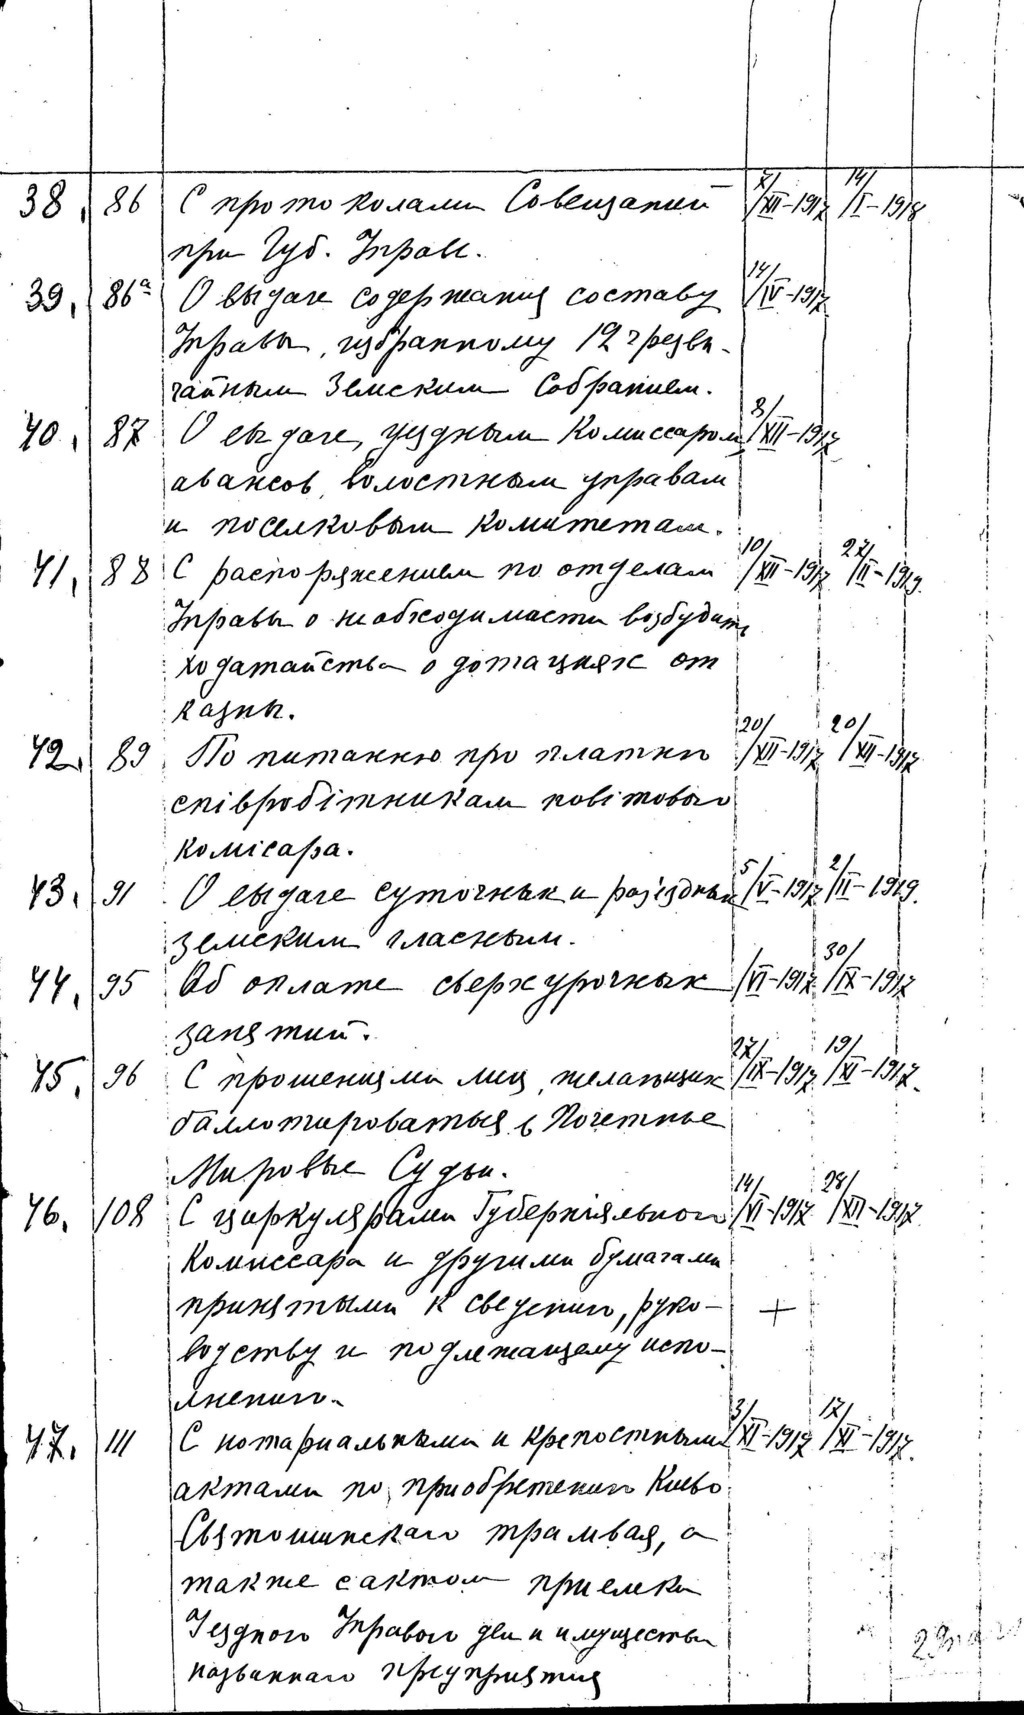 38. 86 С протоколами Совещаний 7/XII-1917 14/I-1918
при Губ. Управ.
39. 86а О выдаче содержания составу 14/IV-1917
Управы, избранному 12 чрезвы-
чайным Земским Собранием.
40. 87 О выдаче, уездным Комиссаром 8/XII-1917
авансов, волостным управам
и поселковым комитетам.
41. 88 С распоряжением по отделам 10/XII-1917 27/II-1919.
Управы о необходимости возбудить
ходатайства о дотациях от
казны.
42. 89 По питанню про платню 20/XII-1917 20/XII-1917
співробітникам повітового
комісара.
43. 91 О выдаче суточных и разъездных 5/V-1917 2/II-1919.
земским гласным.
44. 95 Об оплате сверхурочных /VI-1917 30/IX-1917
занятий.
45. 96 С прошениями лиц, желающих 27/IX-1917 19/XI-1917.
баллотироваться в Почетные
Мировые Судьи.
46. 108 С циркулярами Губерніяльного 14/VI-1917 28/XII-1917
Комиссара и другими бумагами
принятыми к сведению, руко-
водству и подлежащему испо-
лнению.
47. 111 С нотариальными и крепостными 3/XI-1917 17/XI-1917.
актами по приобретению Киево
Святошинскаго трамвая, а
также с актом приемки
Уездною Управою дел и имущества
названнаго предприятия